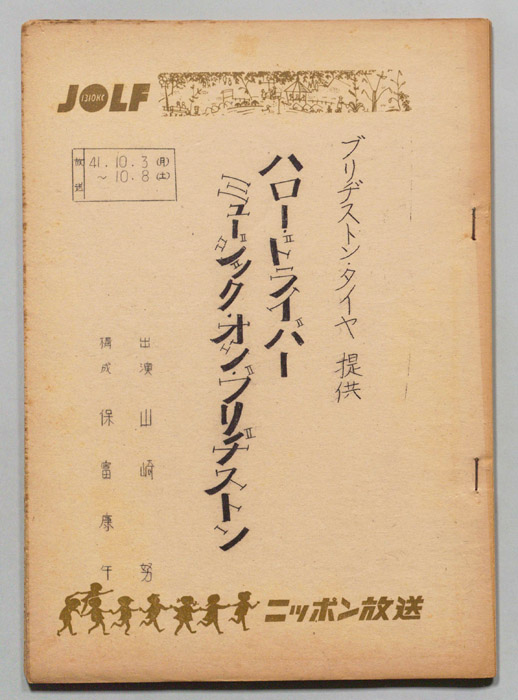 JOLF
1310KC
放送
41.10.3(月)
~10.8(土)
ブリヂストン・タイヤ 提供
ハロー・ドライバー
ミュージック・オン・ブリヂストン
出演 山崎 努
構成 保富康午
ニッポン放送